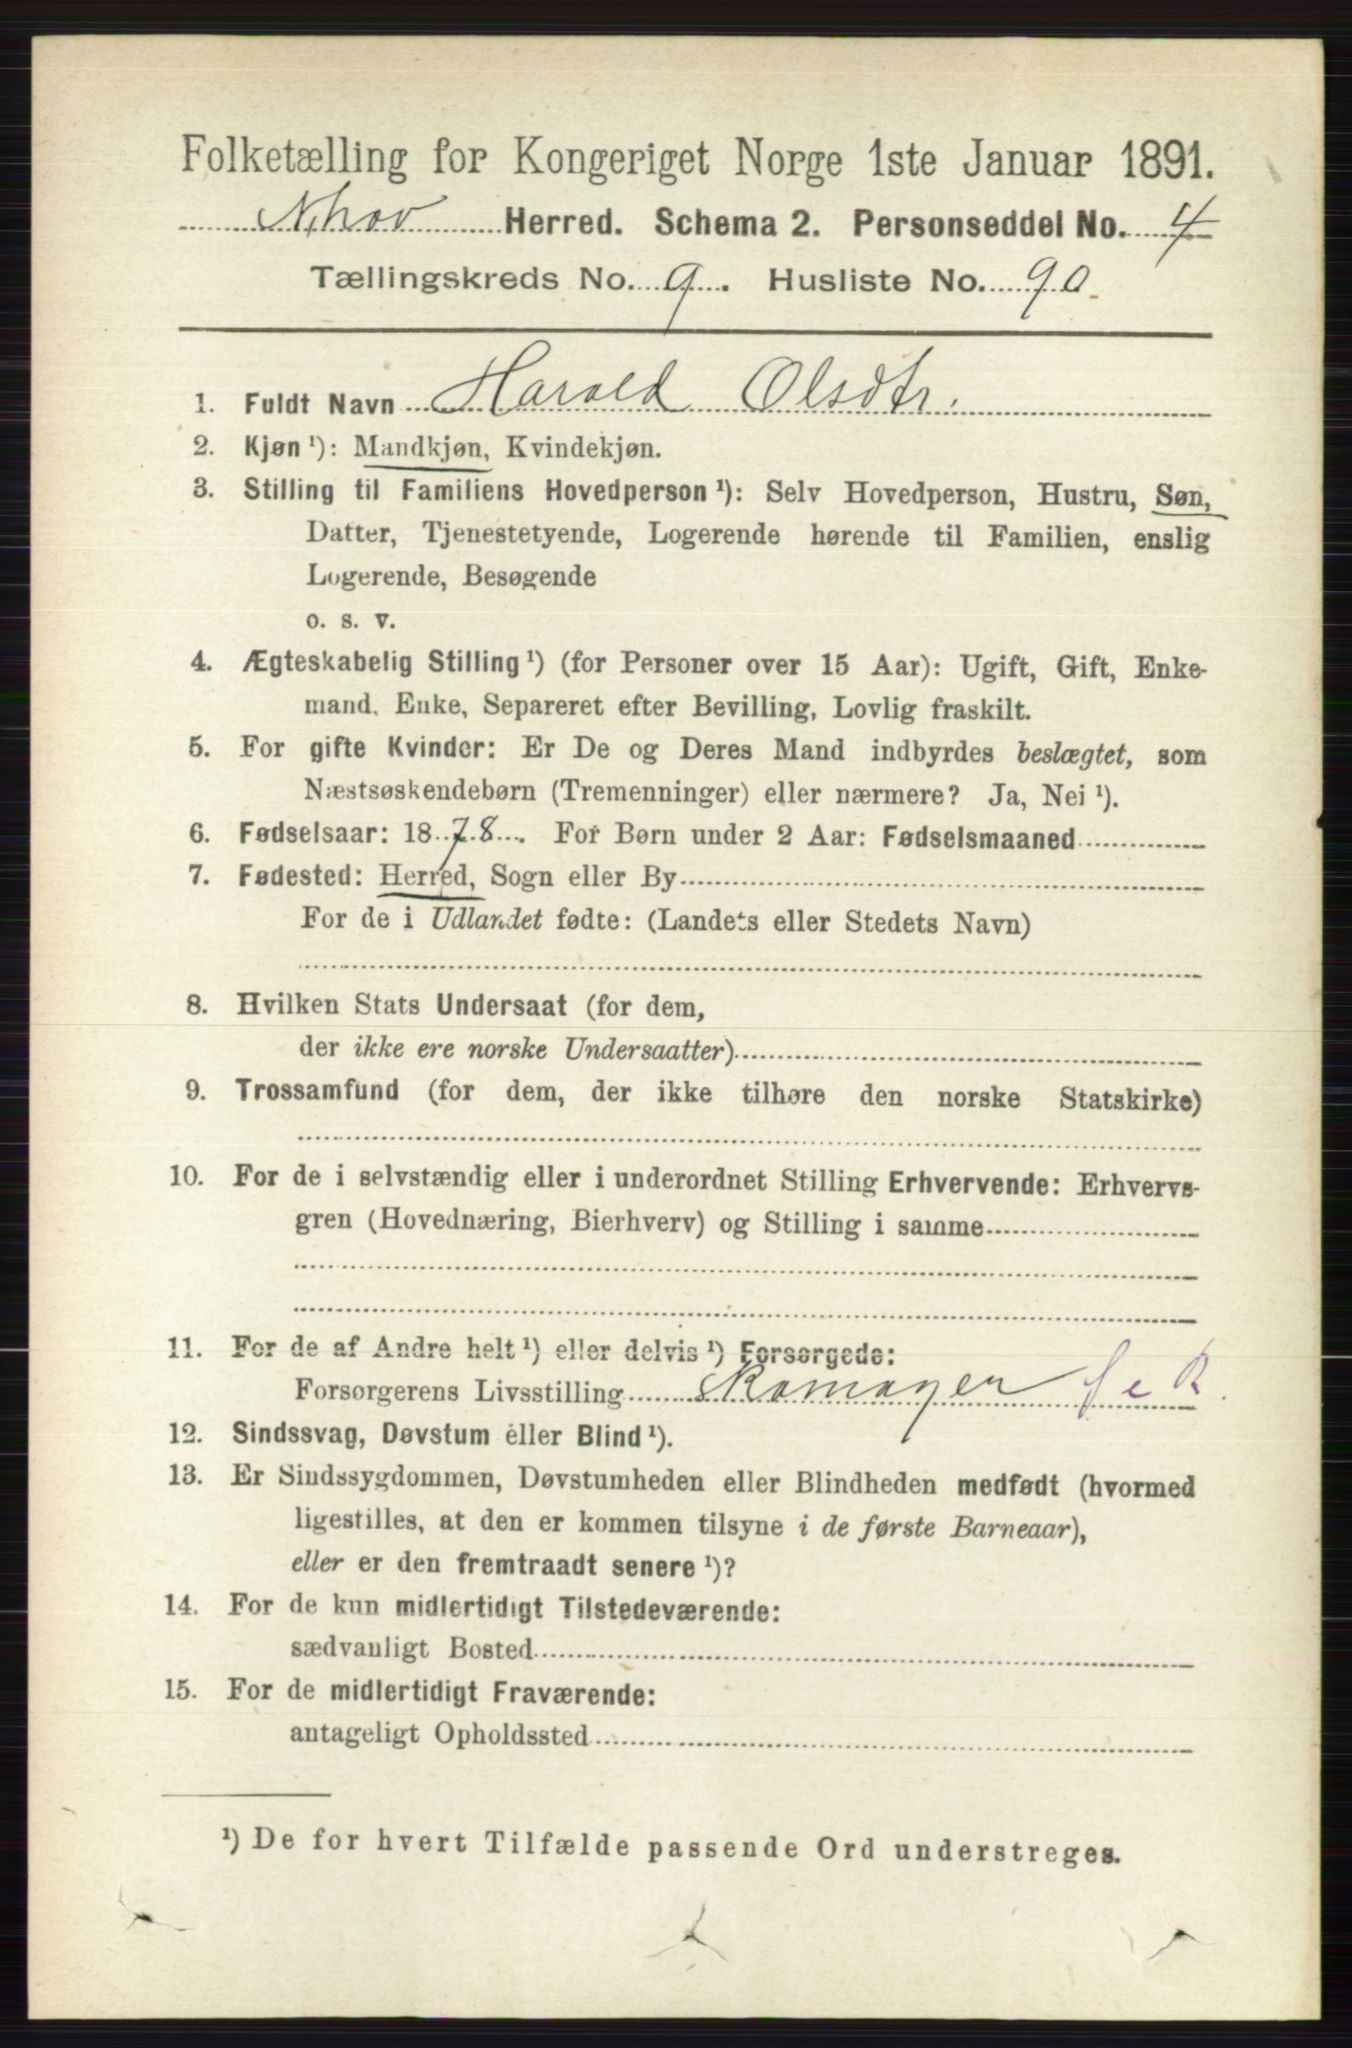 Folketælling for Kongeriget Norge 1ste Januar 1891.
N,hov Herred. Schema 2. Personseddel No. 4
Tællingskreds No. 9. Husliste No. 90.
1. Fuldt Navn Harald Olsdtr.
2. Kjøn ¹): Mandkjøn, Kvindekjøn.
3. Stilling til Familiens Hovedperson ¹): Selv Hovedperson, Hustru, Søn,
Datter, Tjenestetyende, Logerende hørende til Familien, enslig
Logerende, Besøgende
o. s. v.
4. Ægteskabelig Stilling ¹) (for Personer over 15 Aar): Ugift, Gift, Enke-
mand, Enke, Separeret efter Bevilling, Lovlig fraskilt.
5. For gifte Kvinder: Er De og Deres Mand indbyrdes beslægtet, som
Næstsøskendebørn (Tremenninger) eller nærmere? Ja, Nei ¹).
6. Fødselsaar: 1878. For Børn under 2 Aar: Fødselsmaaned
7. Fødested: Herred, Sogn eller By
For de i Udlandet fødte: (Landets eller Stedets Navn)
8. Hvilken Stats Undersaat (for dem,
der ikke ere norske Undersaatter)
9. Trossamfund (for dem, der ikke tilhøre den norske Statskirke)
10. For de i selvstændig eller i underordnet Stilling Erhvervende: Erhvervs-
gren (Hovednæring, Bierhverv) og Stilling i samme
11. For de af Andre helt ¹) eller delvis ¹) Forsørgede:
Forsørgerens Livsstilling Skomager
12. Sindssvag, Døvstum eller Blind ¹).
13. Er Sindssygdommen, Døvstumheden eller Blindheden medfødt (hvormed
ligestilles, at den er kommen tilsyne i de første Barneaar),
eller er den fremtraadt senere ¹)?
14. For de kun midlertidigt Tilstedeværende:
sædvanligt Bosted
15. For de midlertidigt Fraværende:
antageligt Opholdssted
¹) De for hvert Tilfælde passende Ord understreges.